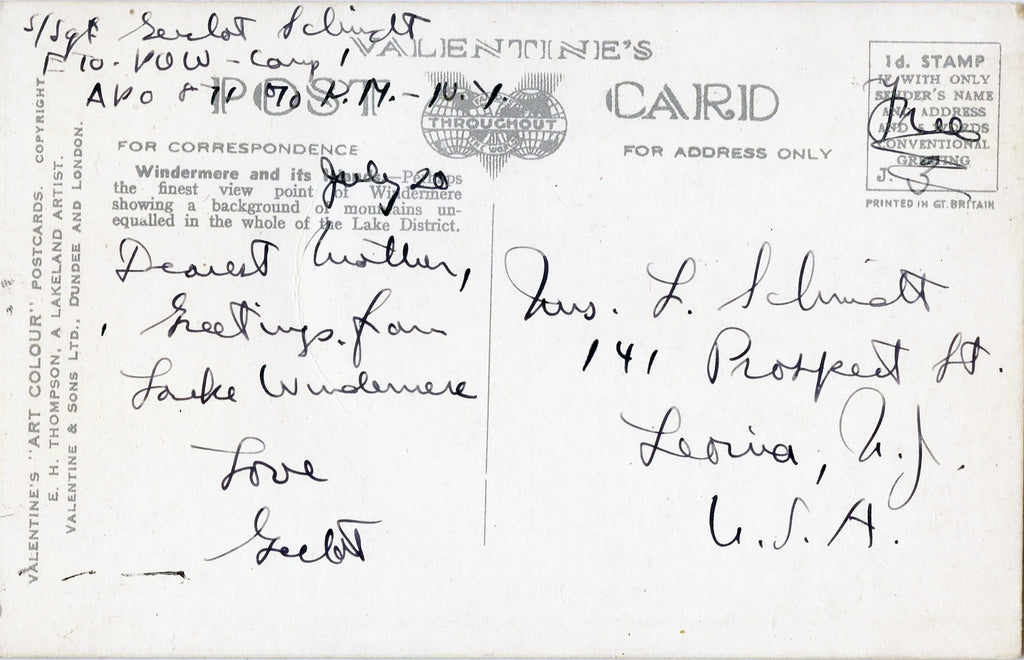 S/Sgt Gerlot Schmidt
FTO - POW - Camp 1
APO 871 % P.M. - N.Y.
VALENTINE'S
POST CARD
THROUGHOUT
THE WORLD
FOR CORRESPONDENCE
FOR ADDRESS ONLY
1d. STAMP
IF WITH ONLY
SENDER'S NAME
AND ADDRESS
AND 5 WORDS
CONVENTIONAL
GREETING
J.
Free
PRINTED IN GT. BRITAIN
July 20
Windermere and its —Perhaps
the finest view point of Windermere
showing a background of mountains un-
equalled in the whole of the Lake District.
Dearest Mother,
Greetings from
Lake Windemere
Love
Gerlot
Mrs. L. Schmidt
141 Prospect St.
Leonia, N.J.
U.S.A.
VALENTINE'S "ART COLOUR" POSTCARDS. COPYRIGHT
E. H. THOMPSON, A LAKELAND ARTIST.
VALENTINE & SONS LTD., DUNDEE AND LONDON.